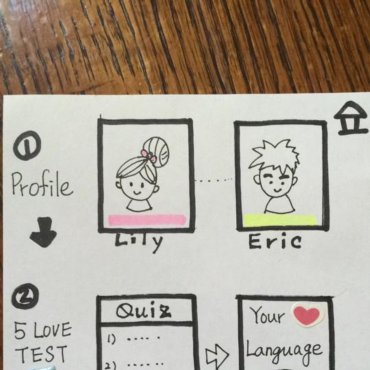 1
Profile
Lily
Eric
2
5 LOVE
TEST
Quiz
1) .....
2) .....
Your
Language